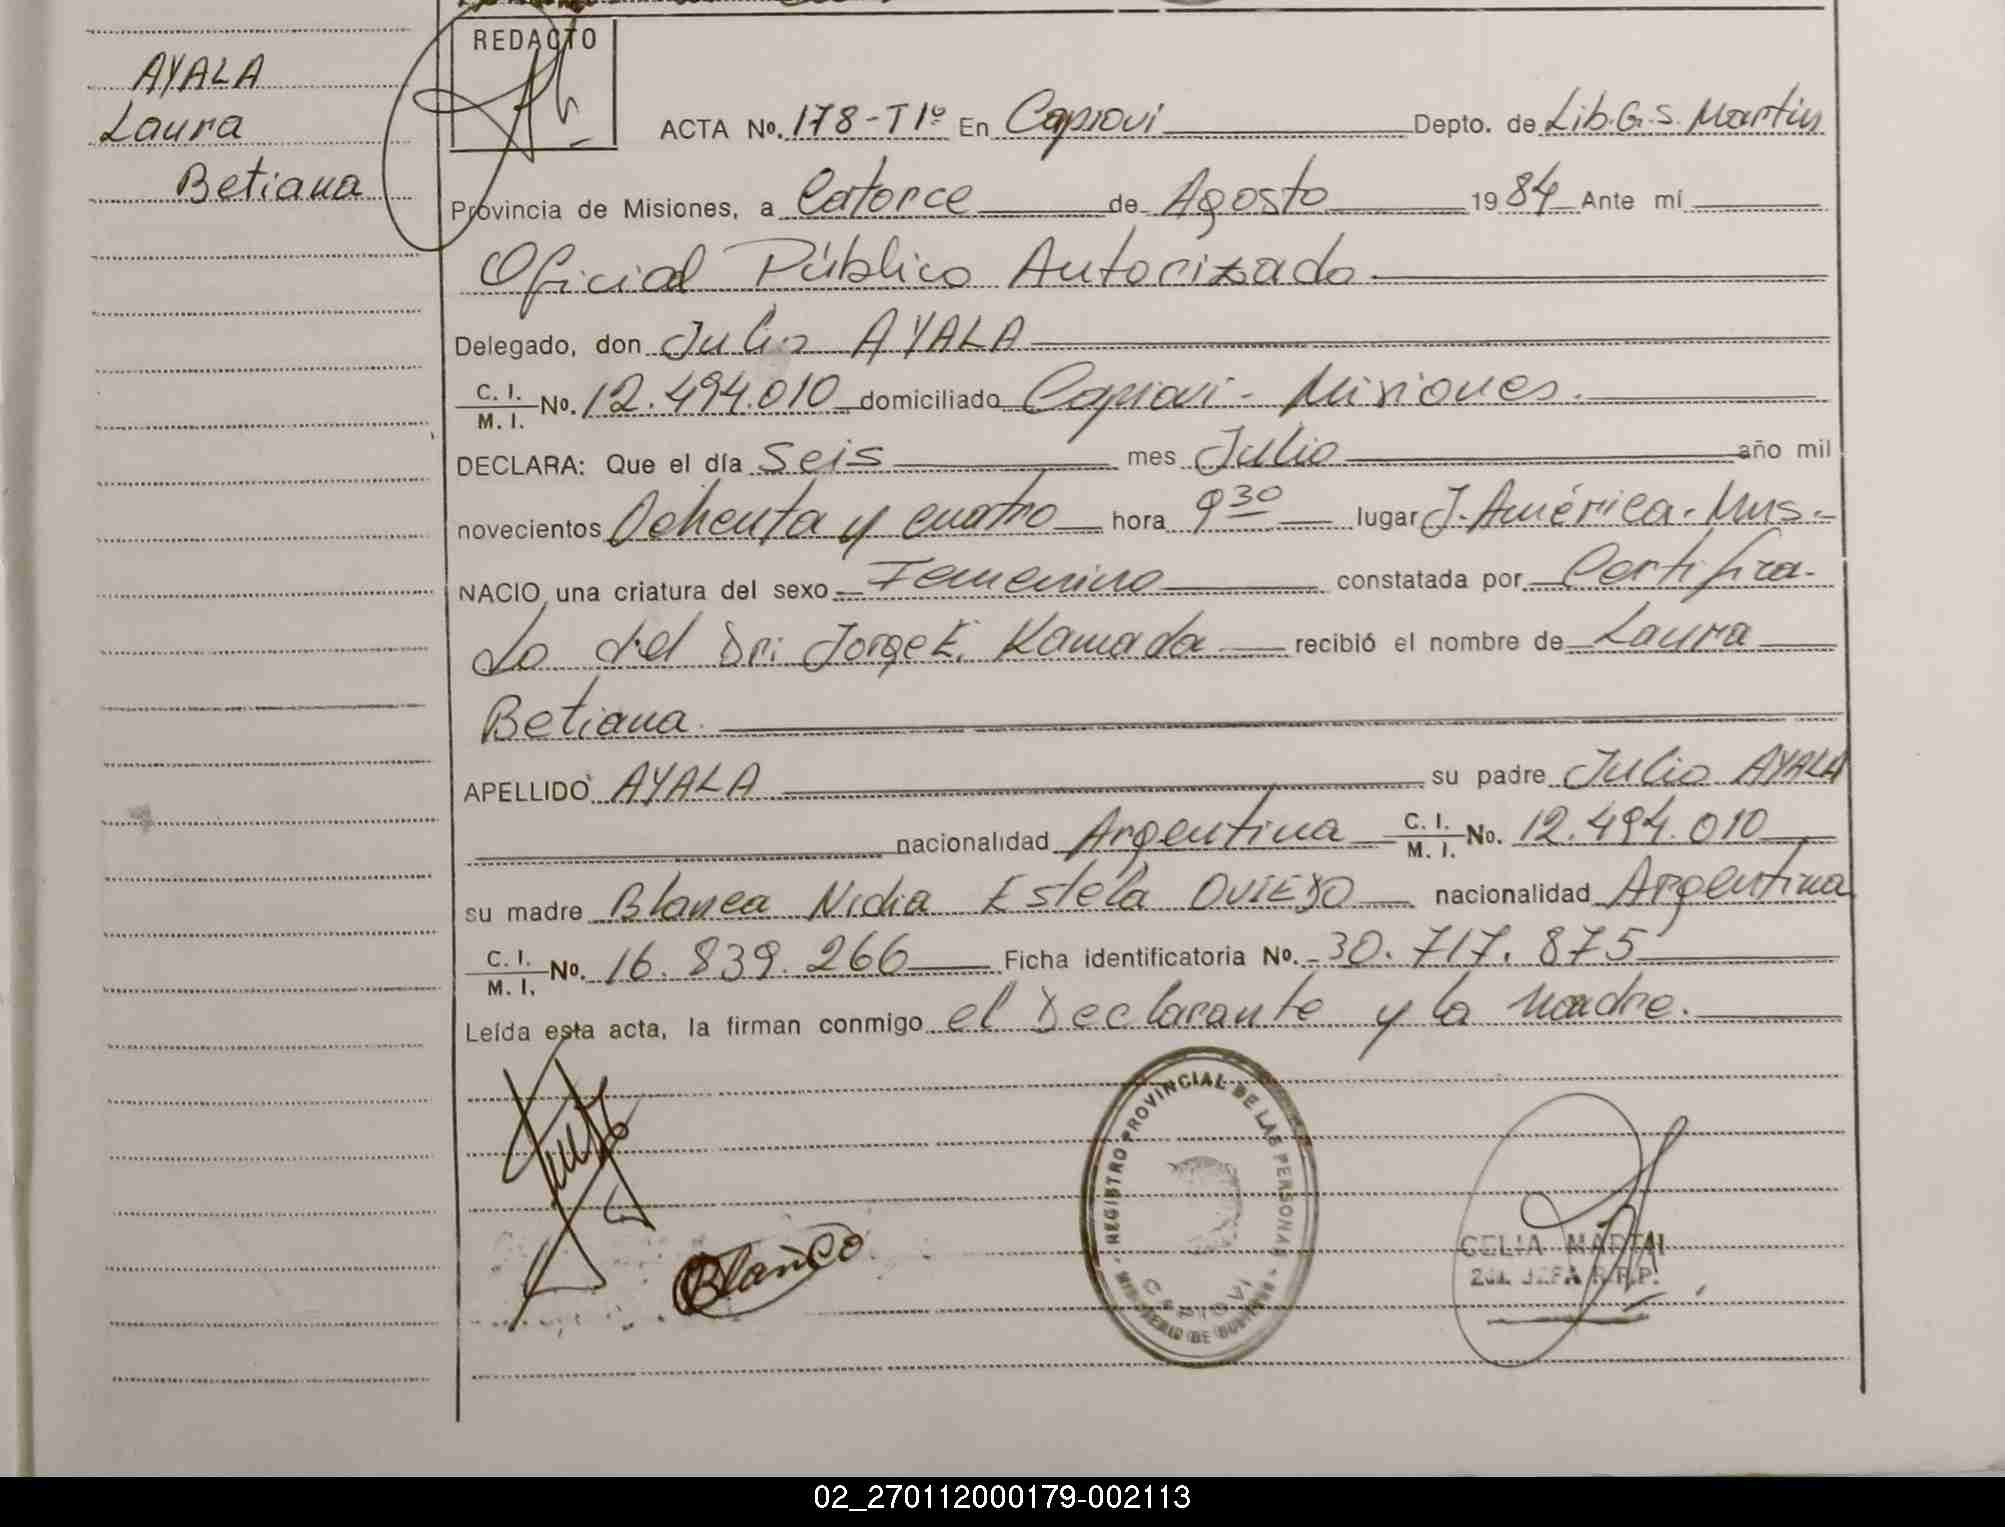 AYALA
Laura
Betiana
REDACTO
ACTA No. 178-T1º En Capiovi Depto. de Lib.G.S. Martin
Provincia de Misiones, a Catorce de Agosto 1984 Ante mí
Oficial Público Autorizado
Delegado, don Julio AYALA
C. I. M. I. No. 12.494.010 domiciliado Capiovi - Misiones.
DECLARA: Que el día Seis mes Julio año mil
novecientos Ochenta y cuatro hora 9 30 lugar J. América. Mns.-
NACIO una criatura del sexo Femenino constatada por Certifica-
do del Dr: Jorge E. Kamada recibió el nombre de Laura
Betiana
APELLIDO AYALA su padre Julio AYALA
nacionalidad Argentina C. I. M. I. No. 12.494.010
su madre Blanca Nidia Estela OVIEDO nacionalidad Argentina
C. I. M. I. No. 16.839.266 Ficha identificatoria No. 30.717.875
Leída esta acta, la firman conmigo el Declarante y la madre.
REGISTRO PROVINCIAL DE LAS PERSONAS
CAPIOVI
CELIA MARTAI
2da. JEFA R.P.P.
02_270112000179-002113